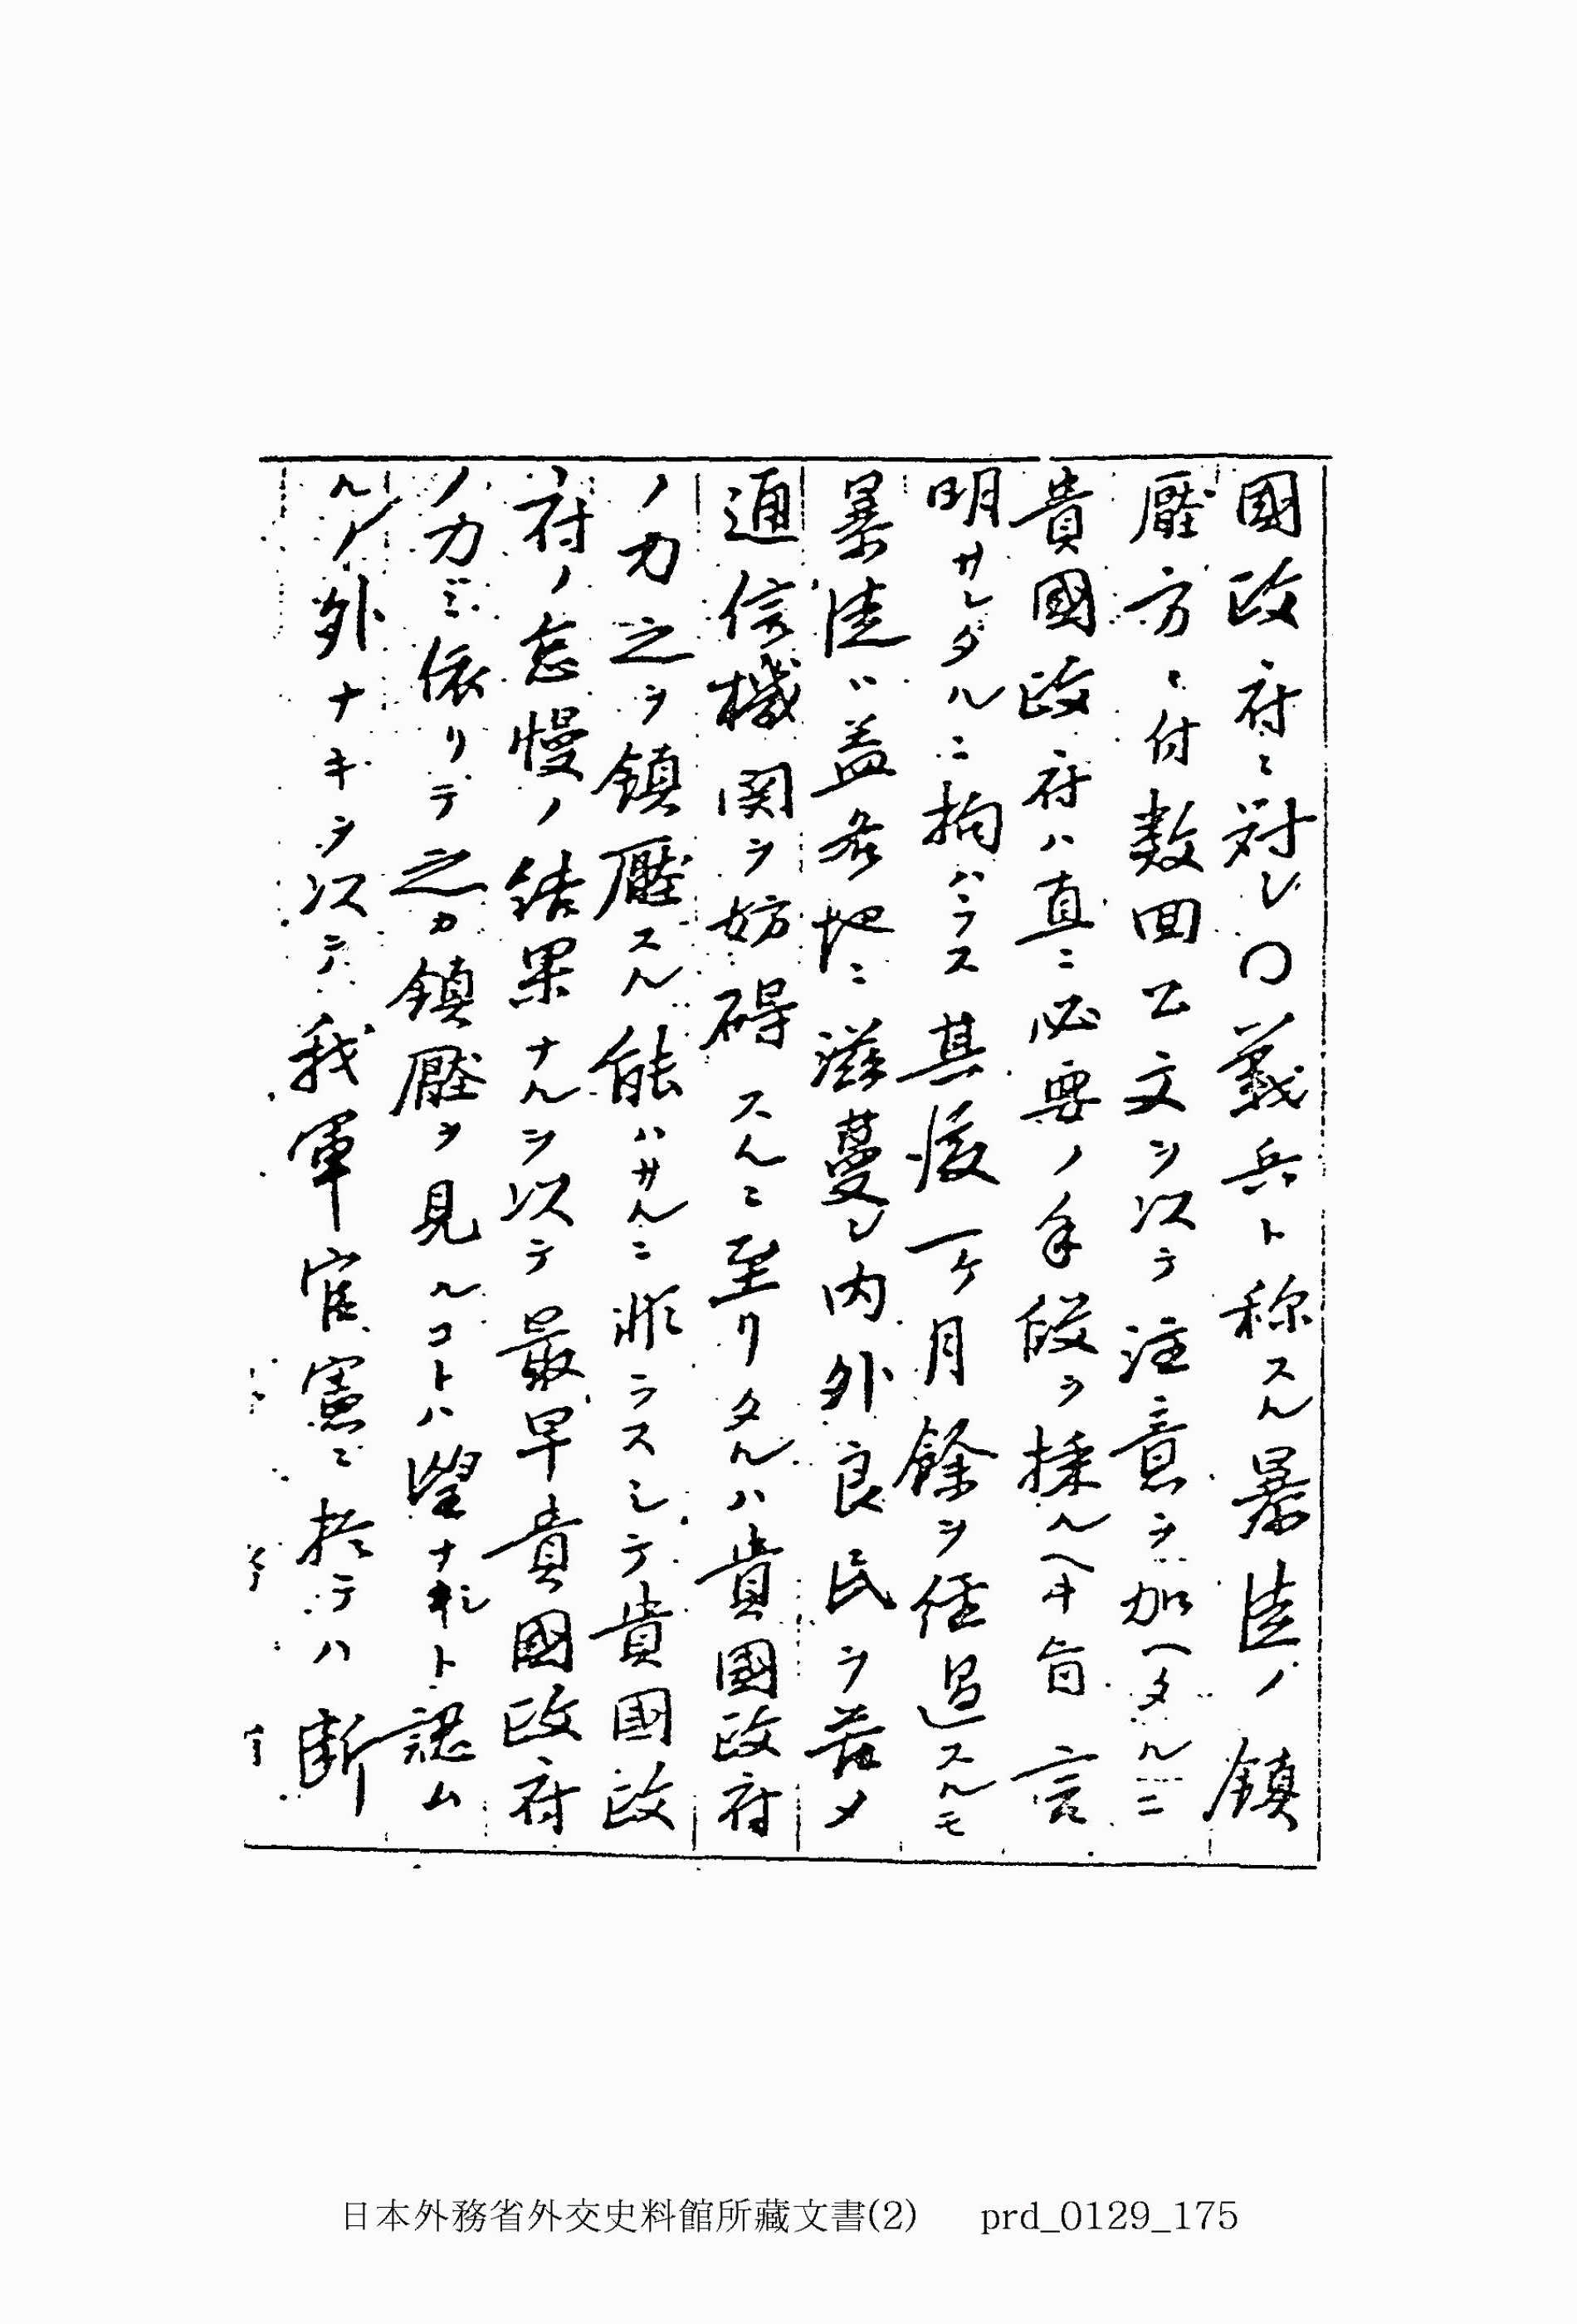 國政府ニ対シ〇義兵ト称スル暴徒ノ鎮
壓方ニ付数回公文ヲ以テ注意ヲ加ヘタルニ
貴國政府ハ直ニ必要ノ手段ヲ採ルヘキ旨言
明サレタルニ拘ハラス其後一ケ月餘ヲ経過スルモ
暴徒ハ益各地ニ滋蔓シ内外良民ヲ苦メ
通信機関ヲ妨碍スルニ至リタルハ貴國政府
ノ力之ヲ鎮壓スル能ハサルニ非ラスシテ貴國政
府ノ怠慢ノ結果ナルヲ以テ最早貴國政府
ノ力ニ依リテ之カ鎮壓ヲ見ルコトハ望ナキト認ム
ルノ外ナキヲ以テ我軍官憲ニ於テハ断
日本外務省外交史料館所藏文書(2) prd_0129_175